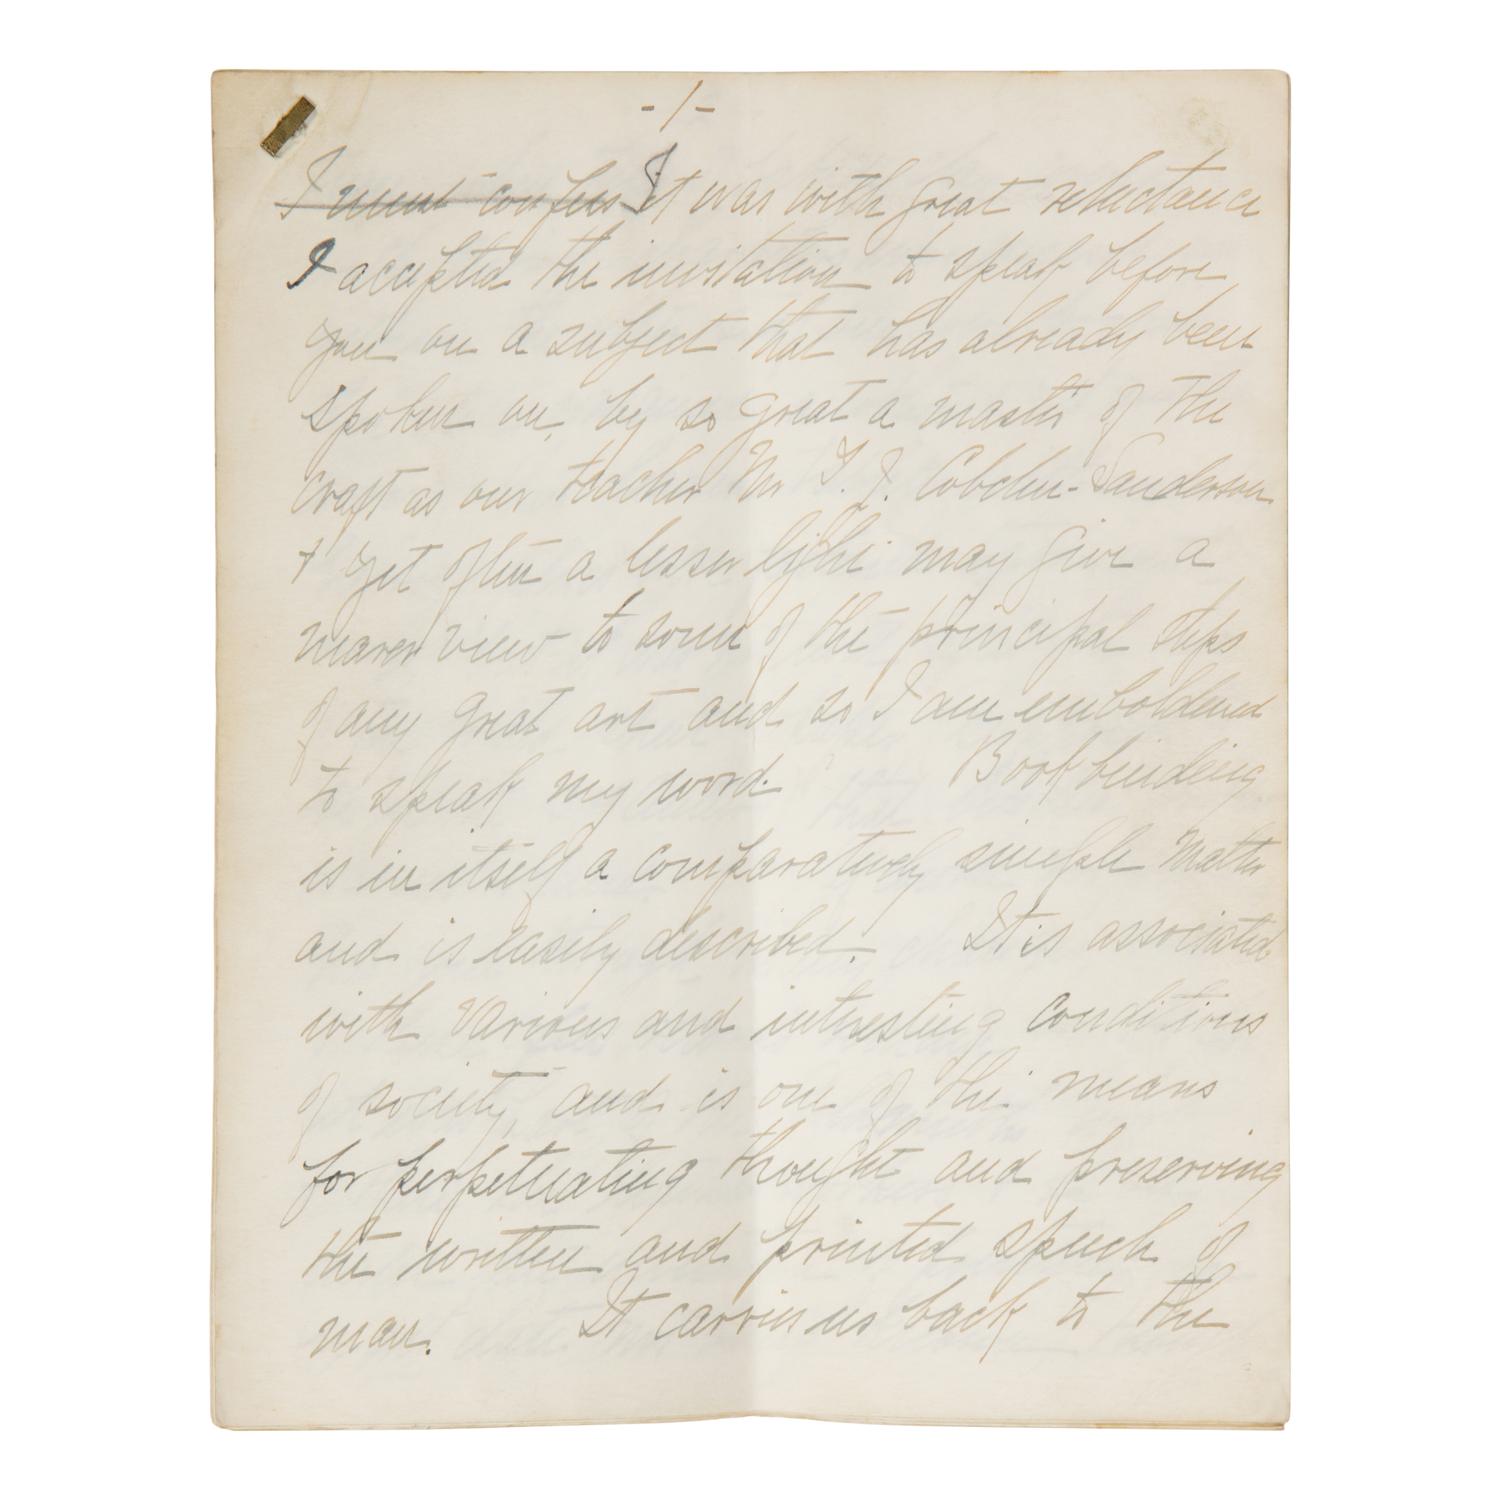 -1-
I must confess It was with great reluctance
I accepted the invitation to speak before
you on a subject that has already been
spoken on, by so great a master of the
craft as our teacher Mr T. J. Cobden-Sanderson
+ yet often a lesser light may give a
nearer view to some of the principal steps
of any great art and so I am emboldened
to speak my word. Bookbinding
is in itself a comparatively simple matter
and is easily described. It is associated
with various and interesting conditions
of society, and is one of the means
for perpetuating thought and preserving
the written and printed speech of
man. It carries us back to the